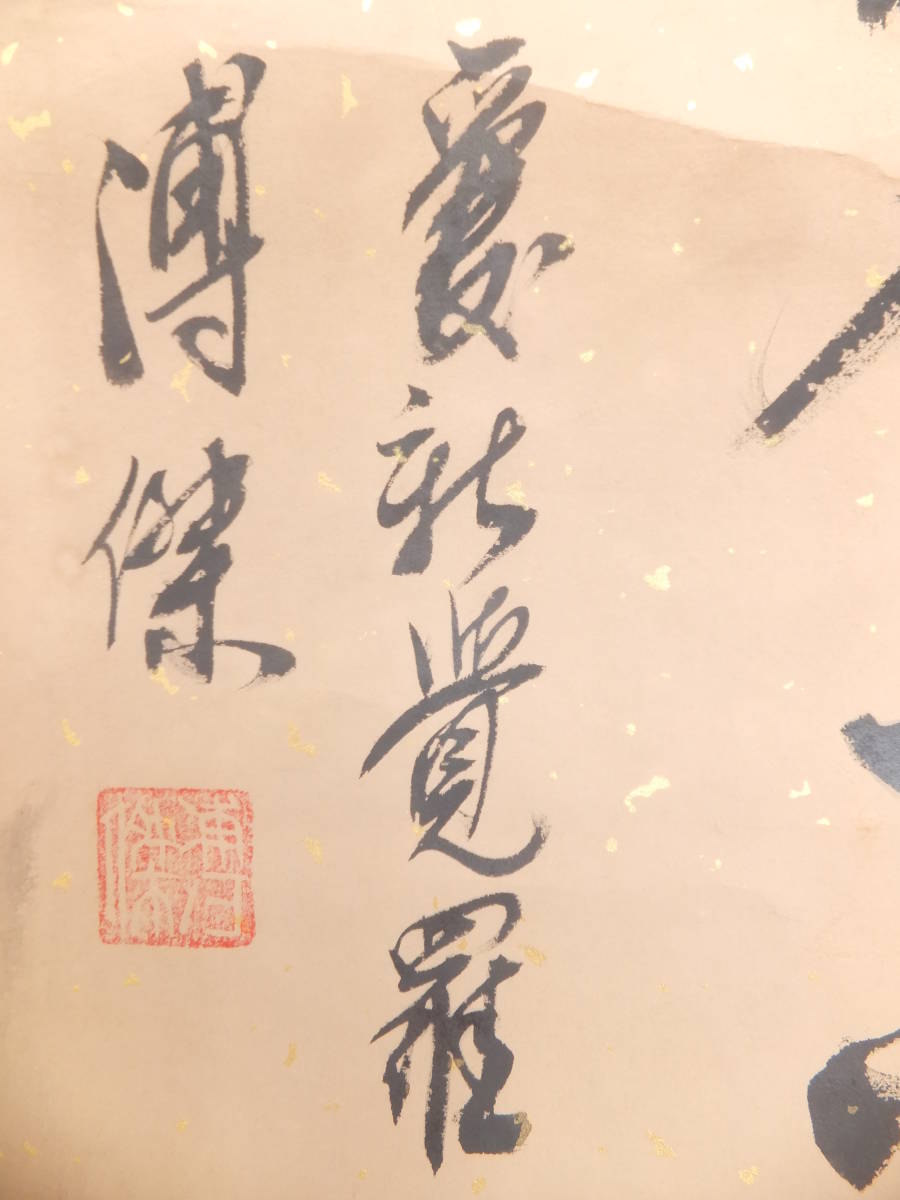 愛新覺羅
溥傑
溥傑